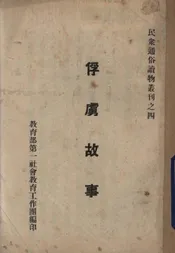 民衆通俗讀物叢刊之四
俘虜故事
教育部第一社會教育工作團編印